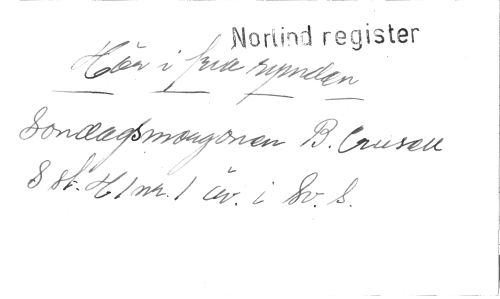 Norlind register
Här i fria rymden
Söndagsmorgonen B. Crusell
8 st. H 1 nr. 1 äv. i Sv. S.